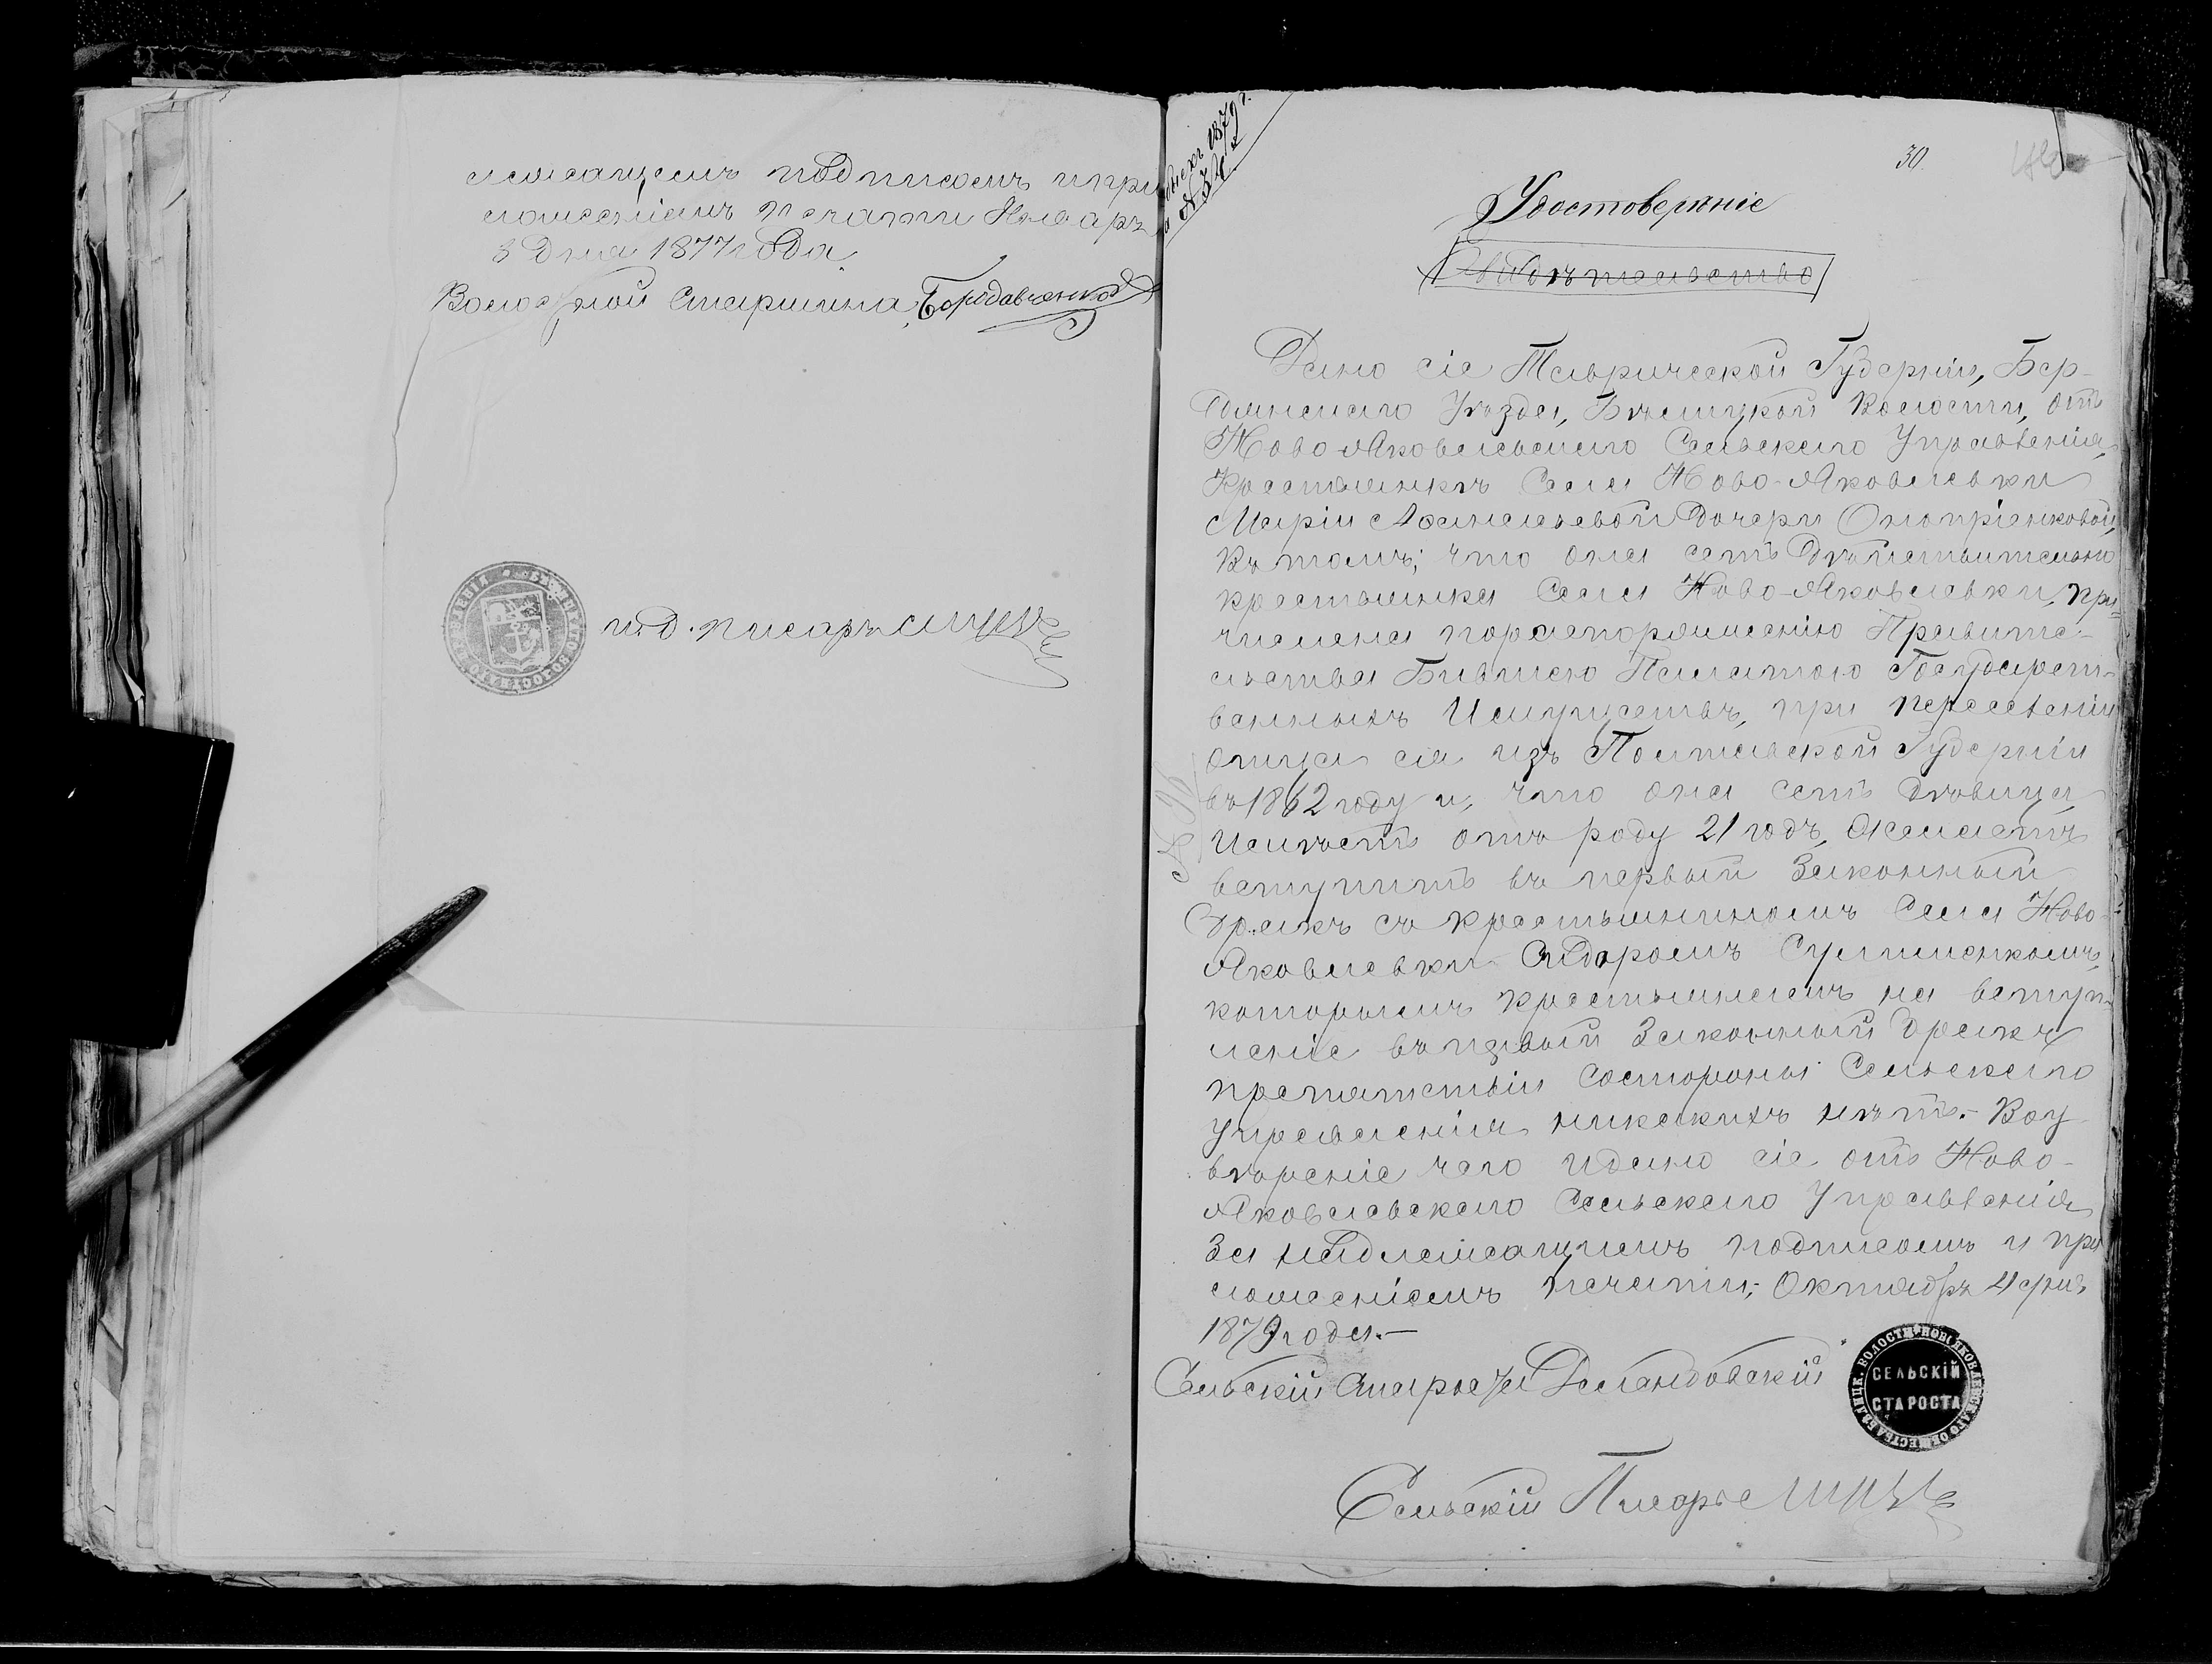 лежащемъ подписомъ и при
ложеніемъ печати Январь
3 дня 1877 года
Волостной Старшина Бородавченко
и. д. писаря
30
Удостовереніе
Свидѣтельство
Дано сіе Таврической Губерніи, Бер-
дянскаго Уѣзда, Бѣлицкой Волости, отъ
Ново-Яковлевскаго Сельскаго Управленія,
Крестьянкѣ Села Ново-Яковлевки
Маріи Афанасьевой Дочери Оноприенковой,
въ томъ; что она есть Дѣйствительно
крестьянка Села Ново-Яковлевки, при-
числена пораспоряженію Правите-
льства Бившею Палатою Государст-
венныхъ Имуществъ, при переселеніи
отца ея изъ Полтавской Губерніи
въ 1862 году и, что она есть дѣвица,
Имѣетъ отъ роду 21 годъ, желаетъ
вступить въ первый Законный
бракъ съ крестьяниномъ Села Ново-
Яковлевки Сидоромъ Сулименкомъ,
которымъ крестьянамъ на вступ-
леніе въ первый Законный бракъ
препятствій состороны Сельскаго
Управленія никакихъ нѣтъ.- Воу-
вѣреніе чего идано сіе отъ Ново-
Яковлевскаго Сельскаго Управленія
За надлежащимъ подписомъ и при
ложеніемъ печати; Октябрь 4 дня
1879 года.-
Сельскій Староста
СЕЛЬСКІЙ
СТАРОСТА
БѢЛИЦК. ВОЛОСТИ НОВОЯКОВЛЕВСКАГО ОБЩЕСТВА
Сельскій Писарь